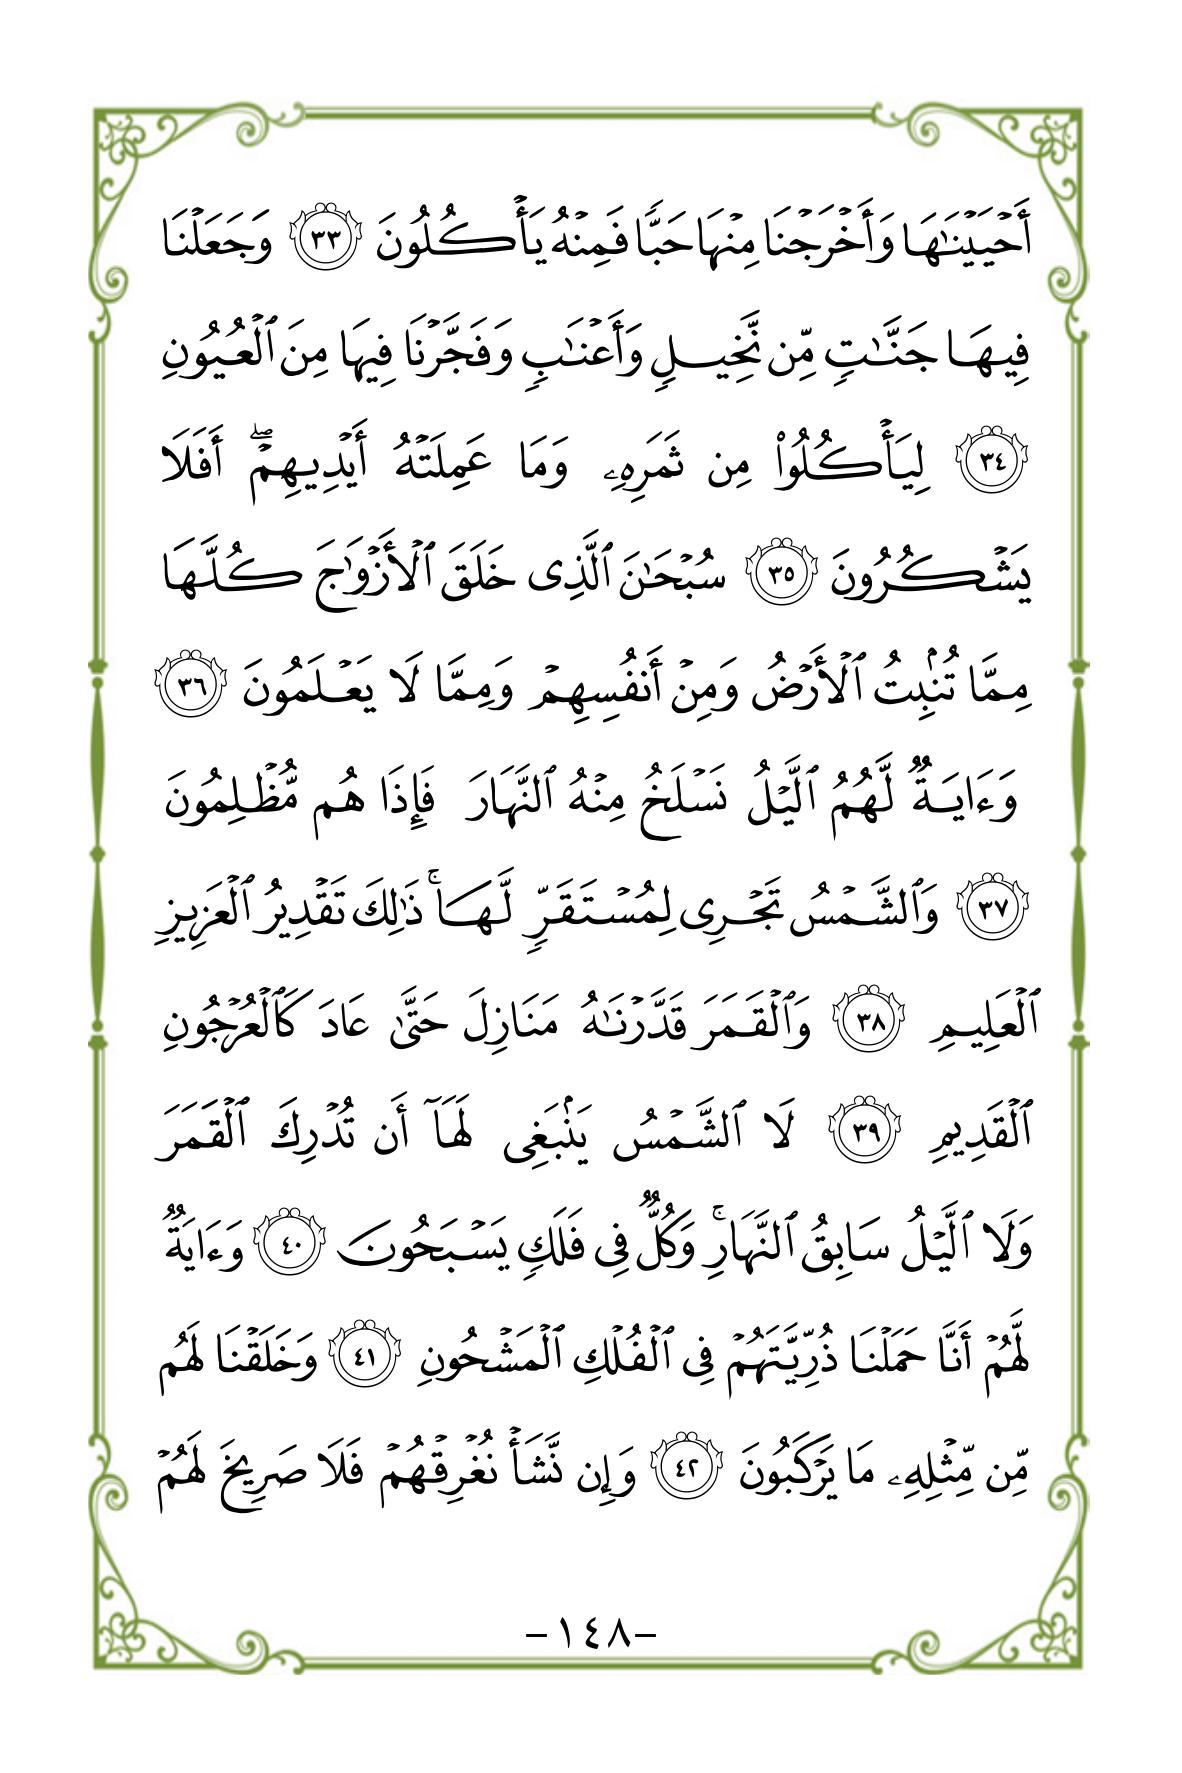 أَحۡيَيۡنَٰهَا وَأَخۡرَجۡنَا مِنۡهَا حَبّٗا فَمِنۡهُ يَأۡكُلُونَ ٣٣ وَجَعَلۡنَا
فِيهَا جَنَّٰتٖ مِّن نَّخِيلٖ وَأَعۡنَٰبٖ وَفَجَّرۡنَا فِيهَا مِنَ ٱلۡعُيُونِ
٣٤ لِيَأۡكُلُواْ مِن ثَمَرِهِۦ وَمَا عَمِلَتۡهُ أَيۡدِيهِمۡۖ أَفَلَا
يَشۡكُرُونَ ٣٥ سُبۡحَٰنَ ٱلَّذِى خَلَقَ ٱلۡأَزۡوَٰجَ كُلَّهَا
مِمَّا تُنۢبِتُ ٱلۡأَرۡضُ وَمِنۡ أَنفُسِهِمۡ وَمِمَّا لَا يَعۡلَمُونَ ٣٦
وَءَايَةٞ لَّهُمُ ٱلَّيۡلُ نَسۡلَخُ مِنۡهُ ٱلنَّهَارَ فَإِذَا هُم مُّظۡلِمُونَ
٣٧ وَٱلشَّمۡسُ تَجۡرِى لِمُسۡتَقَرّٖ لَّهَاۚ ذَٰلِكَ تَقۡدِيرُ ٱلۡعَزِيزِ
ٱلۡعَلِيمِ ٣٨ وَٱلۡقَمَرَ قَدَّرۡنَٰهُ مَنَازِلَ حَتَّىٰ عَادَ كَٱلۡعُرۡجُونِ
ٱلۡقَدِيمِ ٣٩ لَا ٱلشَّمۡسُ يَنۢبَغِى لَهَآ أَن تُدۡرِكَ ٱلۡقَمَرَ
وَلَا ٱلَّيۡلُ سَابِقُ ٱلنَّهَارِۚ وَكُلّٞ فِى فَلَكٖ يَسۡبَحُونَ ٤٠ وَءَايَةٞ
لَّهُمۡ أَنَّا حَمَلۡنَا ذُرِّيَّتَهُمۡ فِى ٱلۡفُلۡكِ ٱلۡمَشۡحُونِ ٤١ وَخَلَقۡنَا لَهُم
مِّن مِّثۡلِهِۦ مَا يَرۡكَبُونَ ٤٢ وَإِن نَّشَأۡ نُغۡرِقۡهُمۡ فَلَا صَرِيخَ لَهُمۡ
-١٤٨-